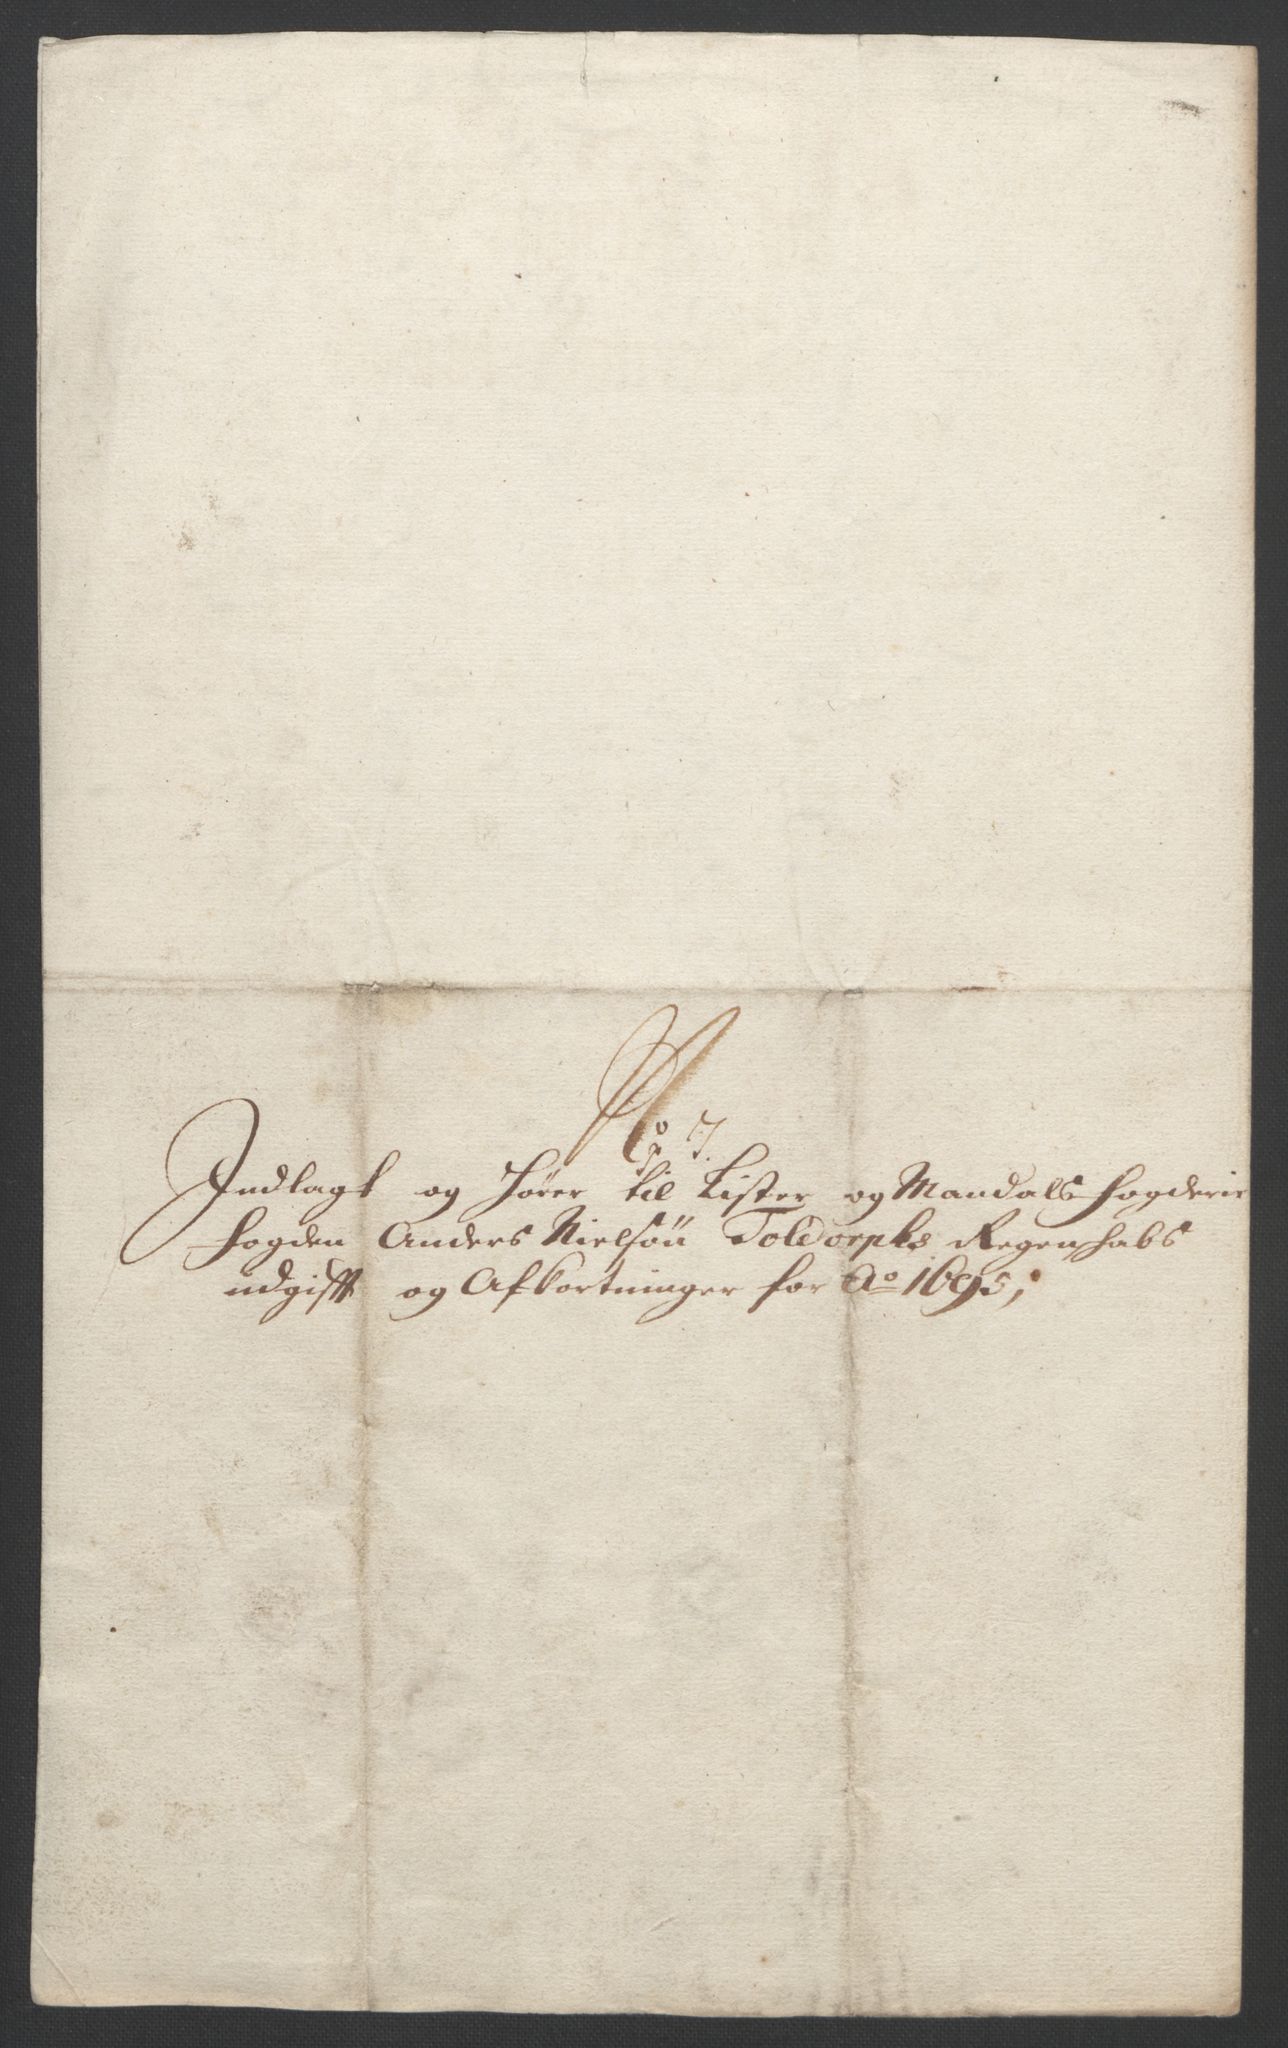 No 7.
Indlagt og hører til Lister og Mandals fogderie
fogden Anders Nielsøn Toldorphs Regenskabs
udgifft og Afkortninger for Ao 1695;